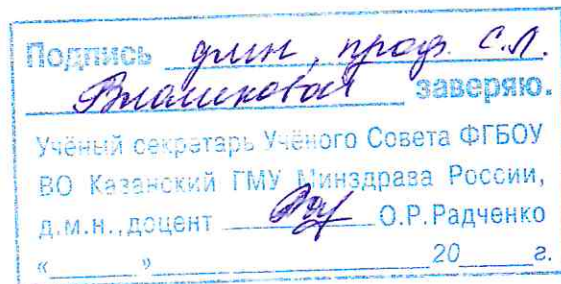 Подпись дмн, проф. С.Л.
заверяю.
Учёный секретарь Учёного Совета ФГБОУ
ВО Казанский ГМУ Минздрава России,
д.м.н., доцент О.Р.Радченко
« » 20 г.